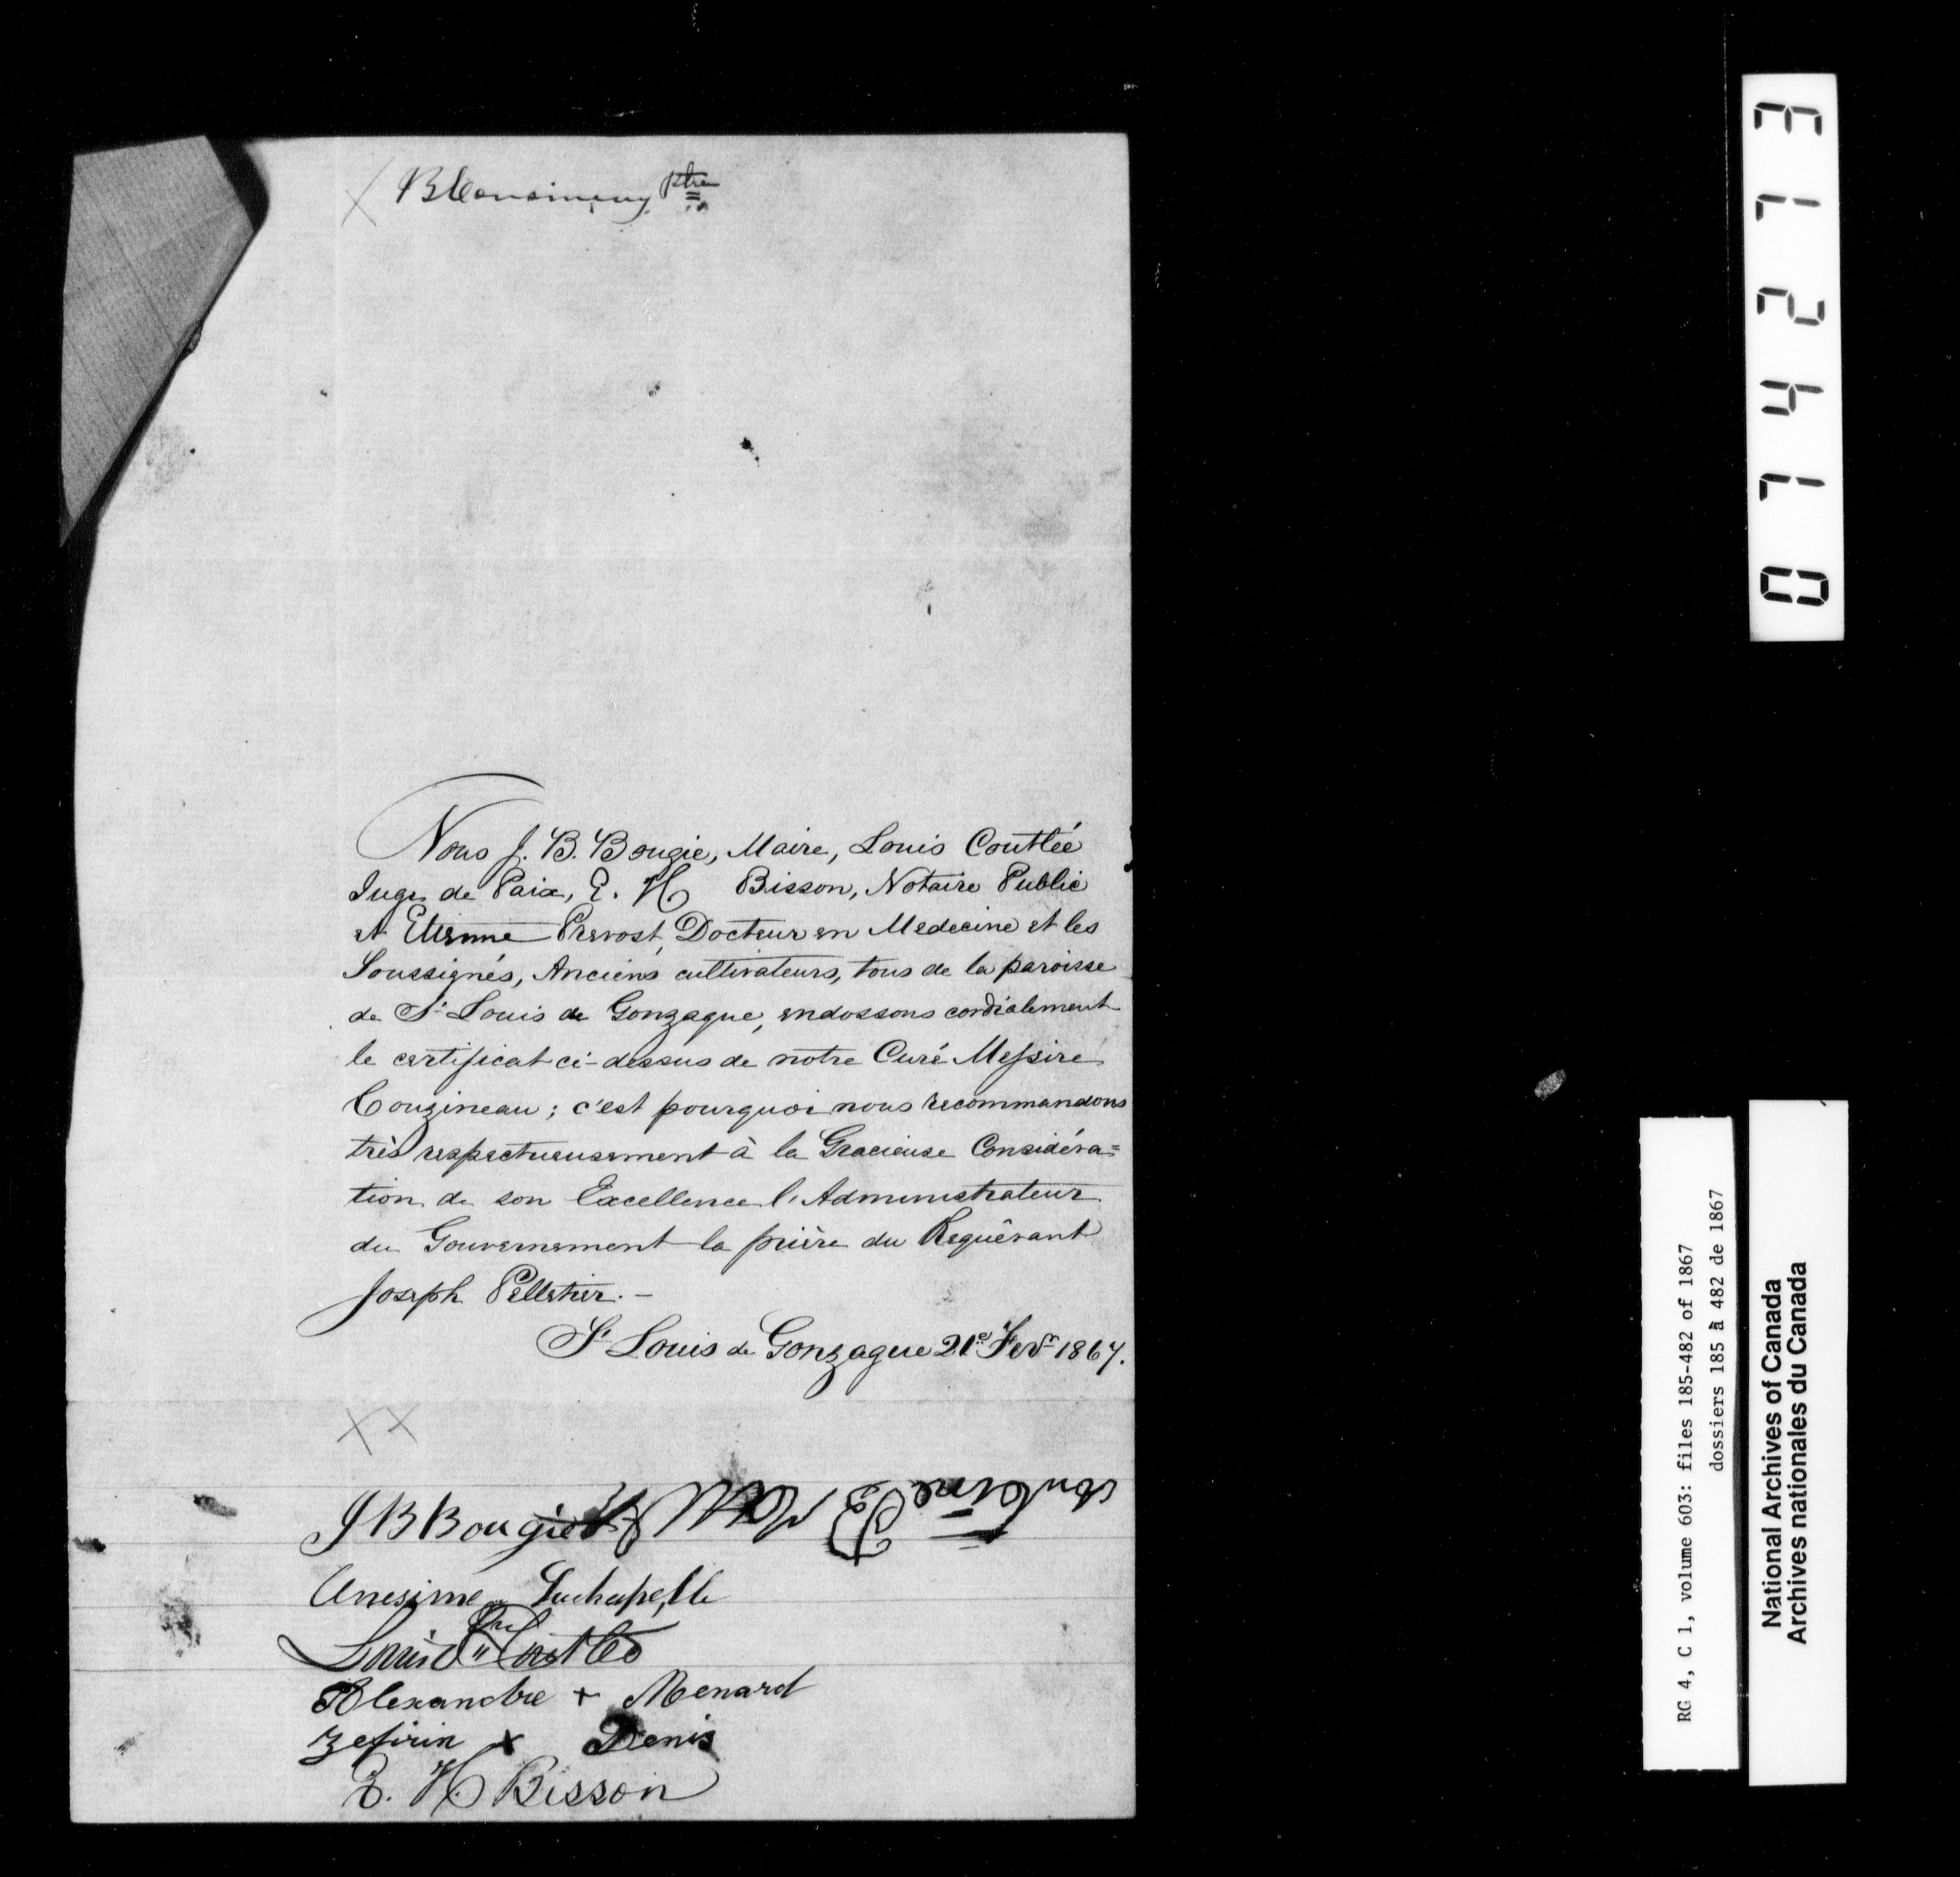 ptre
Nous J. B. Bougie, Maire, Louis Coutlée
Juge de Paix, E. H Bisson, Notaire Public
et Etienne Prevost, Docteur en Medecine et les
Soussignés, Anciens cultivateurs, tous de la paroisse
de St Louis de Gonzague, endossons cordialement
le certificat ci-dessus de notre Curé Messire
Couzineau; c'est pourquoi nous recommandons
très respectueusement à la Gracieuse Considéra=
tion de son Excellence l'Administrateur
du Gouvernement la prière du Requérant
Joseph Pelletier. -
St Louis de Gonzague 21e Fevr 1867.
XX
J B Bougie
Onesime Lachapelle
Louis Coutlée
Alexandre + Menard
Zefirin x Denis
E. H. Bisson
074273
RG 4, C 1, volume 603: files 185-482 of 1867
dossiers 185 à 482 de 1867
National Archives of Canada
Archives nationales du Canada